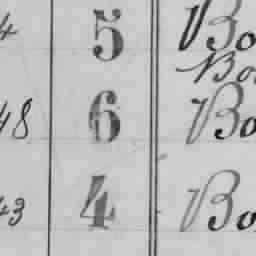 4 5 Bo
Bo
48 6 Bo
43 4 Bo